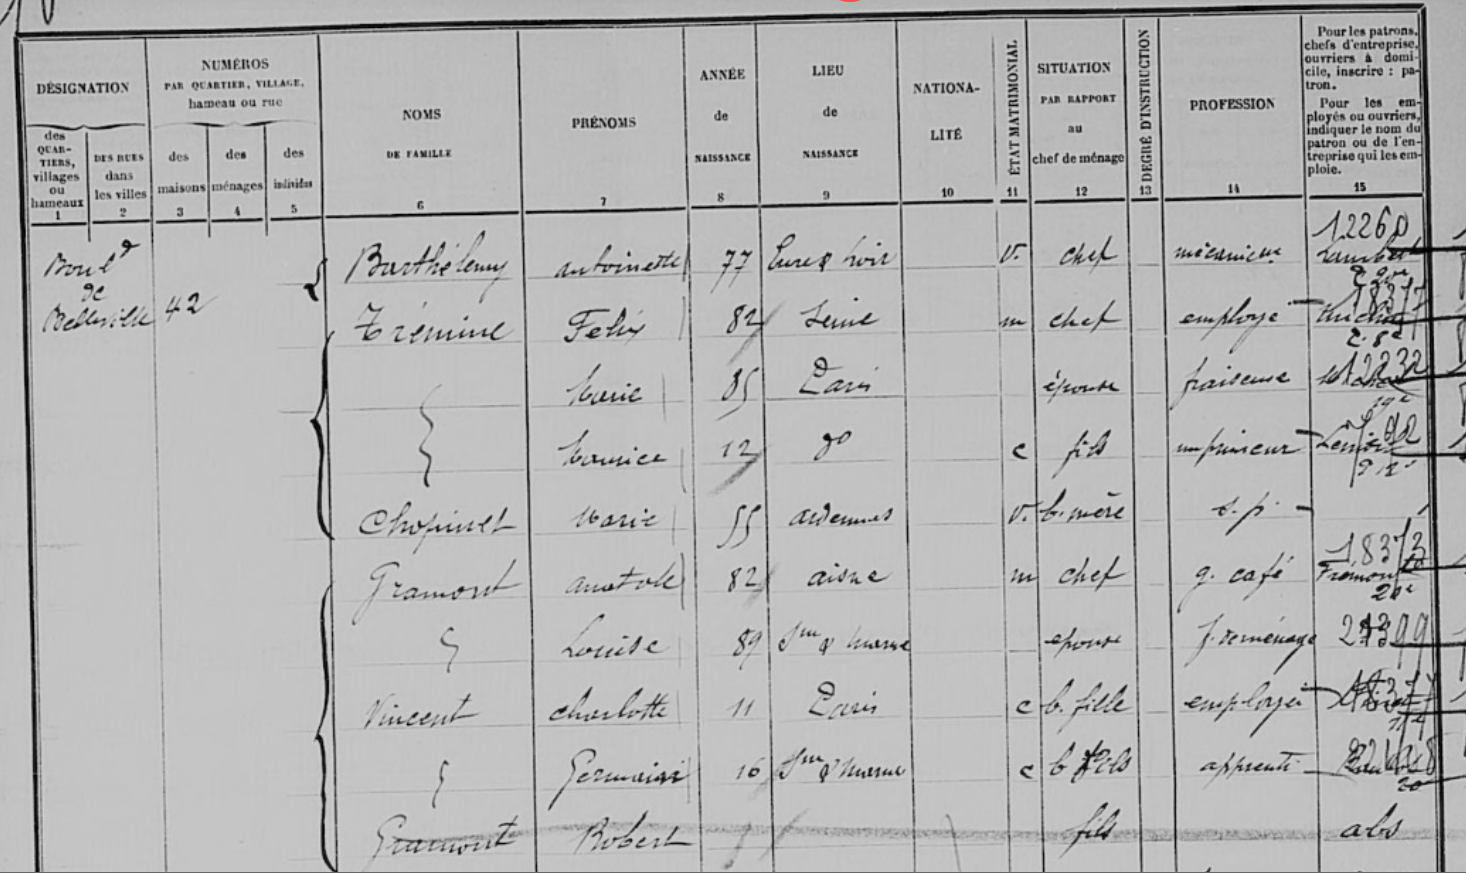 DÉSIGNATION
des QUAR-TIERS, villages ou hameaux
1
DES RUES dans les villes
2
NUMÉROS
PAR QUARTIER, VILLAGE,
hameau ou rue
des maisons
3
des ménages
4
des individus
5
NOMS
DE FAMILLE
6
PRÉNOMS
7
ANNÉE
de
NAISSANCE
8
LIEU
de
NAISSANCE
9
NATIONA-
LITÉ
10
ÉTAT MATRIMONIAL
11
SITUATION
PAR RAPPORT
au
chef de ménage
12
DEGRÉ D'INSTRUCTION
13
PROFESSION
14
Pour les patrons,
chefs d'entreprise,
ouvriers à domi-
cile, inscrire : pa-
tron.
Pour les em-
ployés ou ouvriers,
indiquer le nom du
patron ou de l'en-
treprise qui les em-
ploie.
15
12260
Boul d Barthélemy antoinette 77 Eure & Loir v. chef
de
Belleville 42 Trémine Felix 82 Seine m chef employé 18377
Marie 85 Paris épouse fraiseuse 12232
Maurice 12 do c fils imprimeur
Chopinet Marie 55 ardennes v. b. mère s. p.
Gramont anatole 82 aisne m chef g. café 18373
Louise 89 S. m & Marne epouse f. de ménage
Vincent charlotte 11 Paris c b. fille employée 18377
Germain 16 S. m & Marne c b fils apprenti
Gramont Robert fils abs